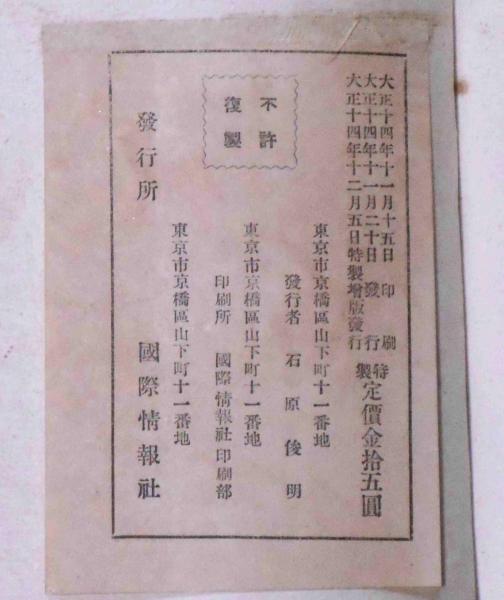 大正十四年十一月十五日印刷
大正十四年十一月二十日發行
大正十四年十二月五日特製增版發行
特製定價金拾五圓
不許
復製
東京市京橋區山下町十一番地
發行者 石原俊明
東京市京橋區山下町十一番地
印刷所 國際情報社印刷部
東京市京橋區山下町十一番地
發行所 國際情報社